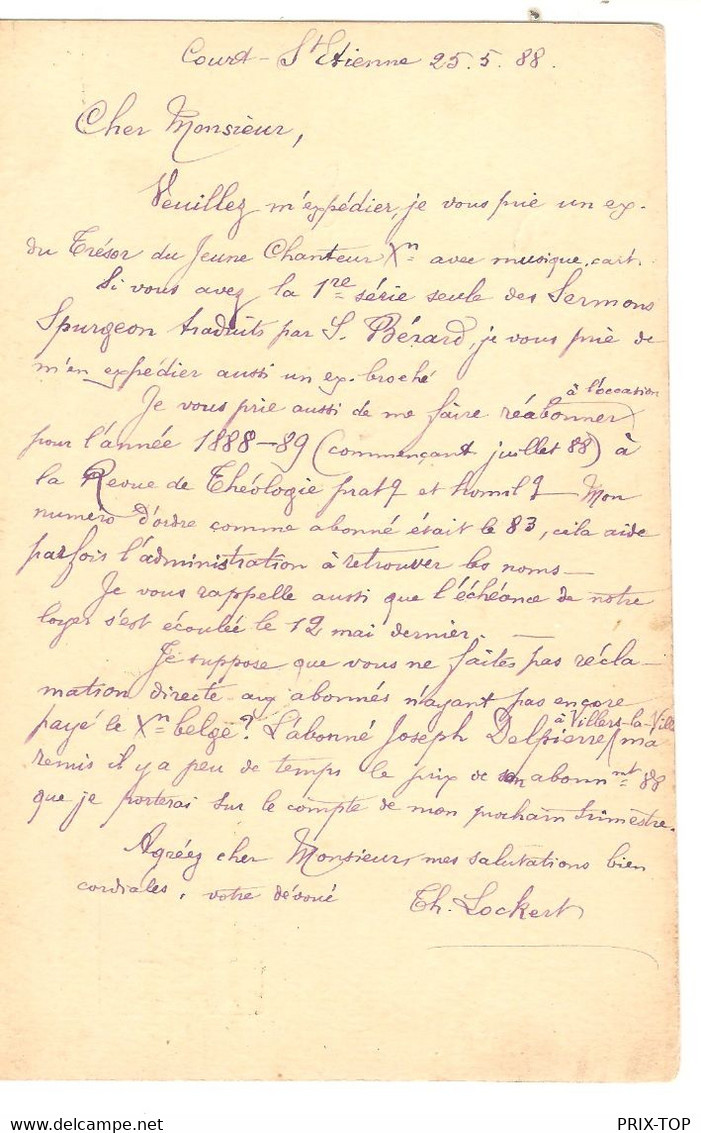 Court-St Etienne 25.5.88.
Cher Monsieur,
Veuillez m'expédier, je vous prie un ex.
du Trésor du Jeune Chanteur Xn avec musique, cart.
Si vous avez la 1re série seule des Sermons
Spurgeon traduits par S. Bérard, je vous prie de
m'en expédier aussi un ex. broché
à l'occasion
Je vous prie aussi de me faire réabonner
pour l'année 1888-89 (commençant juillet 88) à
la Revue de Théologie pratq et homilq — Mon
numéro d'ordre comme abonné était le 83, cela aide
parfois l'administration à retrouver les noms —
Je vous rappelle aussi que l'échéance de notre
loyer s'est écoulée le 12 mai dernier. —
Je suppose que vous ne faites pas récla-
mation directe aux abonnés n'ayant pas encore
à Villers-la-Ville
payé le Xn belge? L'abonné Joseph Delpierre m'a
remis il y a peu de temps le prix de son abonnmt 88
que je porterai sur le compte de mon prochain trimestre.
Agréez cher Monsieur, mes salutations bien
cordiales, votre dévoué Th. Lockert
PRIX-TOP